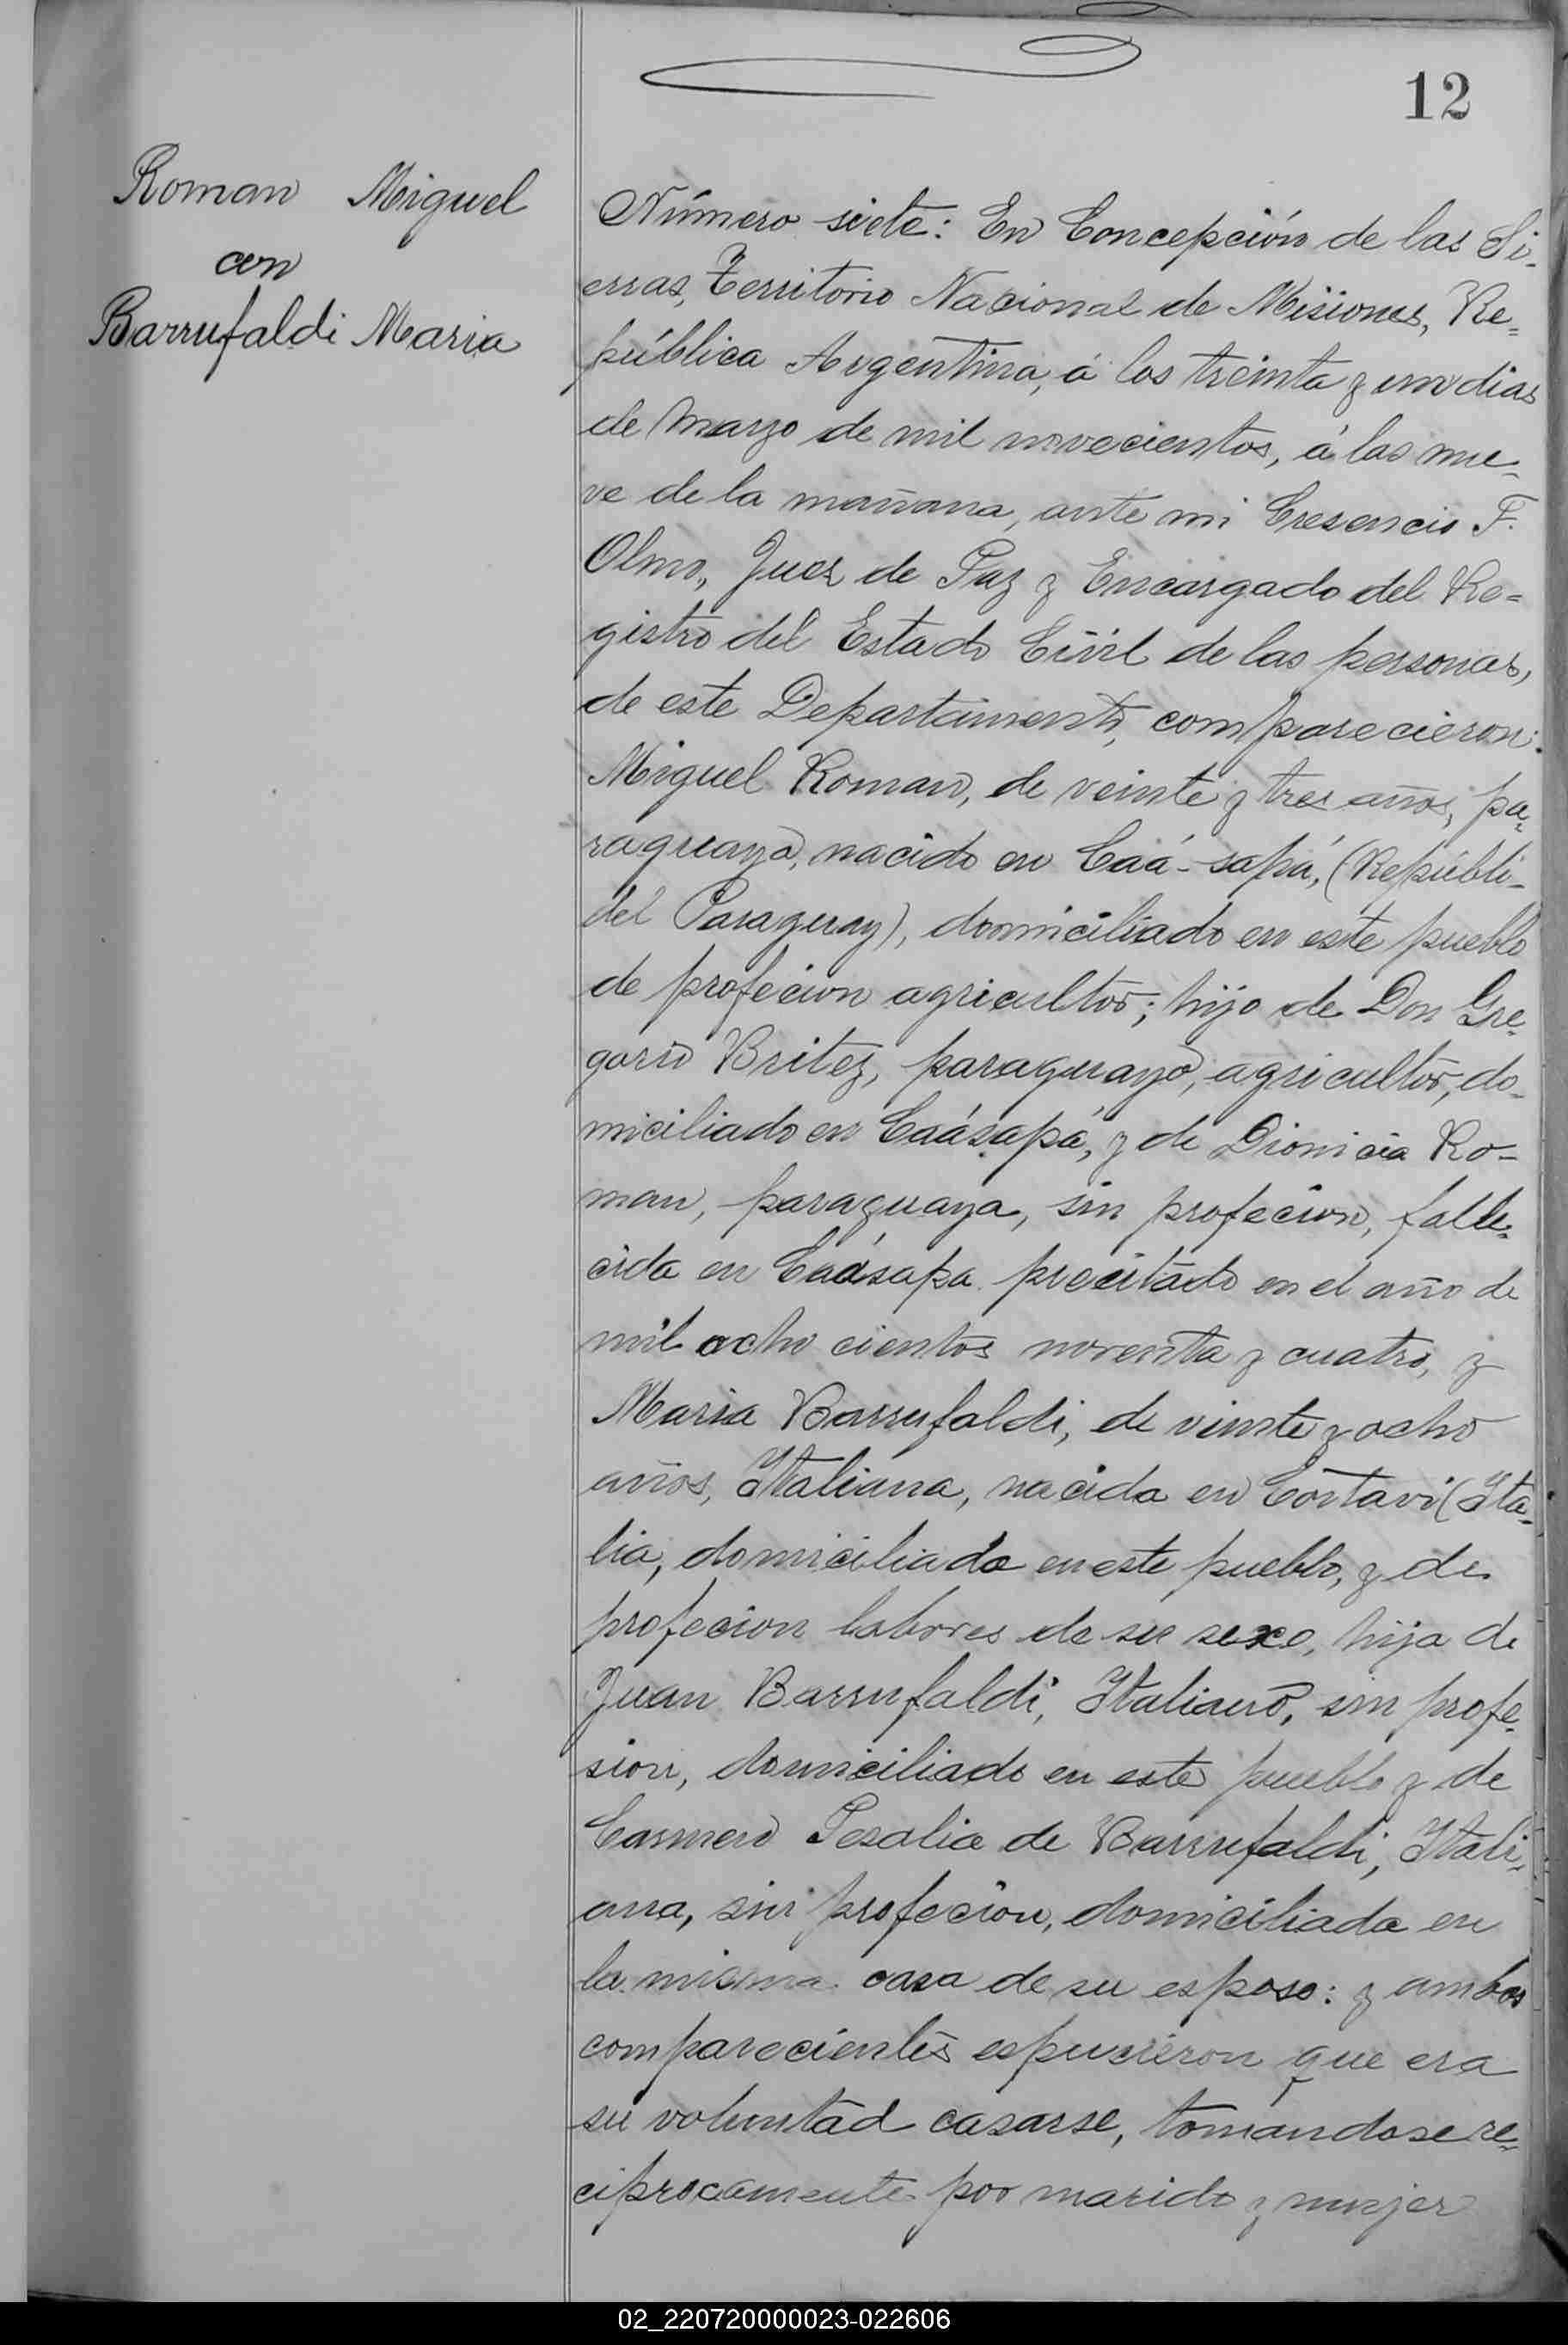 12
Roman Miguel
con
Barrufaldi Maria
Número siete: En Concepción de las Si-
erras, Territorio Nacional de Misiones, Re=
pública Argentina, á los treinta y un dias
de Marzo de mil novecientos, á las nue-
ve de la mañana, ante mi Cresencio F.
Olmo, Juez de Paz y Encargado del Re=
gistro del Estado Civil de las personas,
de este Departamento, comparecieron:
Miguel Roman, de veinte y tres años, pa=
raguayo, nacido en Caá-sapá, (Repúbli-
del Paraguay), domiciliado en este pueblo
de profecion agricultor; hijo de Don Gre=
gorio Britez, paraguayo, agricultor, do-
miciliado en Caásapá, y de Dionicia Ro-
man, paraguaya, sin profecion, falle-
cida en Caásapa precitado en el año de
mil ocho cientos noventa y cuatro, y
Maria Barrufaldi, de vinte y ocho
años, Italiana, nacida en Cortavi (Ita-
lia, domiciliada en este pueblo, y de
profecion labores de su sexo, hija de
Juan Barrufaldi, Italiano, sin profe-
sion, domiciliado en este pueblo y de
de Barrufaldi, Itali-
ana, sin profecion, domiciliada en
la misma casa de su esposo: y ambos
comparecientes espucieron que era
su voluntad casarse, tomandose re=
ciprocamente por marido y mujer
02_220720000023-022606